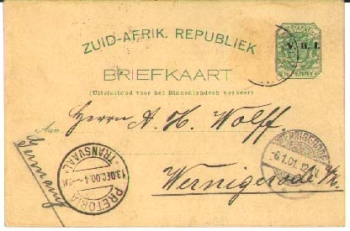 ZUID-AFRIK. REPUBLIEK
V.R.I.
PENNY
BRIEFKAART
(Uitsluitend voor het Binnenlandsch verkeer)
Aan
Herrn A. H. Wolff,
Wernigerode
Germany
PRETORIA
13.DEC.00
TRANSVAAL
WERNIGERODE
6.1.01